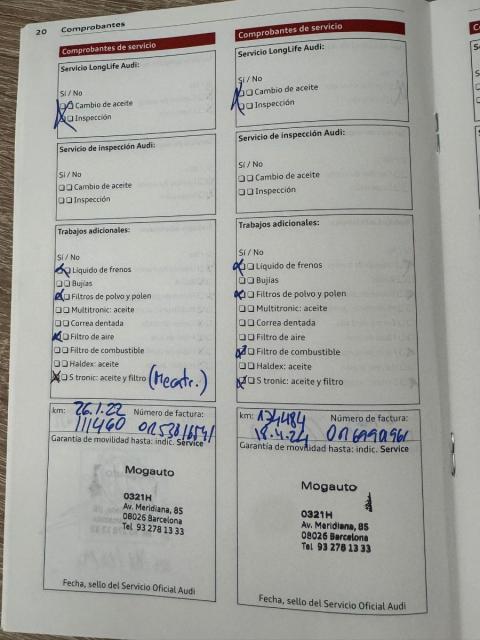 20 Comprobantes
Comprobantes de servicio
Servicio LongLife Audi:
Sí / No
Cambio de aceite
Inspección
Servicio de inspección Audi:
Sí / No
Cambio de aceite
Inspección
Trabajos adicionales:
Sí / No
Líquido de frenos
Bujías
Filtros de polvo y polen
Multitronic: aceite
Correa dentada
Filtro de aire
Filtro de combustible
Haldex: aceite
S tronic: aceite y filtro (Mecatr.)
km: 26.1.22 Número de factura:
111460
Garantía de movilidad hasta: indic. Service
Mogauto
0321H
Av. Meridiana, 85
08026 Barcelona
Tel 93 278 13 33
Fecha, sello del Servicio Oficial Audi
Comprobantes de servicio
Servicio LongLife Audi:
Sí / No
Cambio de aceite
Inspección
Servicio de inspección Audi:
Sí / No
Cambio de aceite
Inspección
Trabajos adicionales:
Sí / No
Líquido de frenos
Bujías
Filtros de polvo y polen
Multitronic: aceite
Correa dentada
Filtro de aire
Filtro de combustible
Haldex: aceite
S tronic: aceite y filtro
km: 134484 Número de factura:
18.4.24
Garantía de movilidad hasta: indic. Service
Mogauto
0321H
Av. Meridiana, 85
08026 Barcelona
Tel 93 278 13 33
Fecha, sello del Servicio Oficial Audi